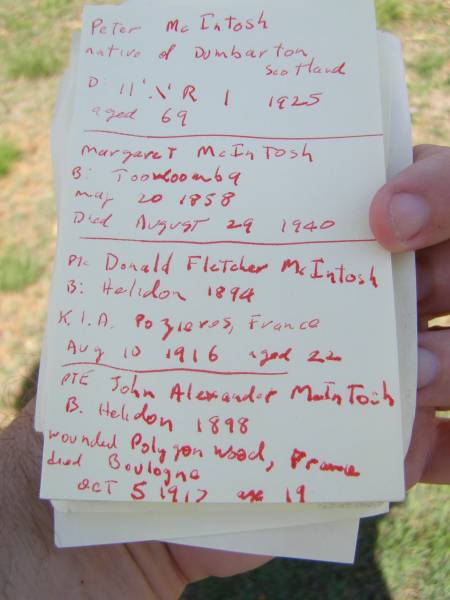 Peter McIntosh
native of Dumbarton
Scotland
D: 1 1925
aged 69
Margaret McIntosh
B: Toowoomba
May 20 1858
Died August 29 1940
Pte Donald Fletcher McIntosh
B: Helidon 1894
K.I.A. Pozieres, France
Aug 10 1916 aged 22
PTE John Alexander McInTosh
B. Helidon 1898
wounded Polygon Wood, France
died Boulogne
OCT 5 1917 age 19